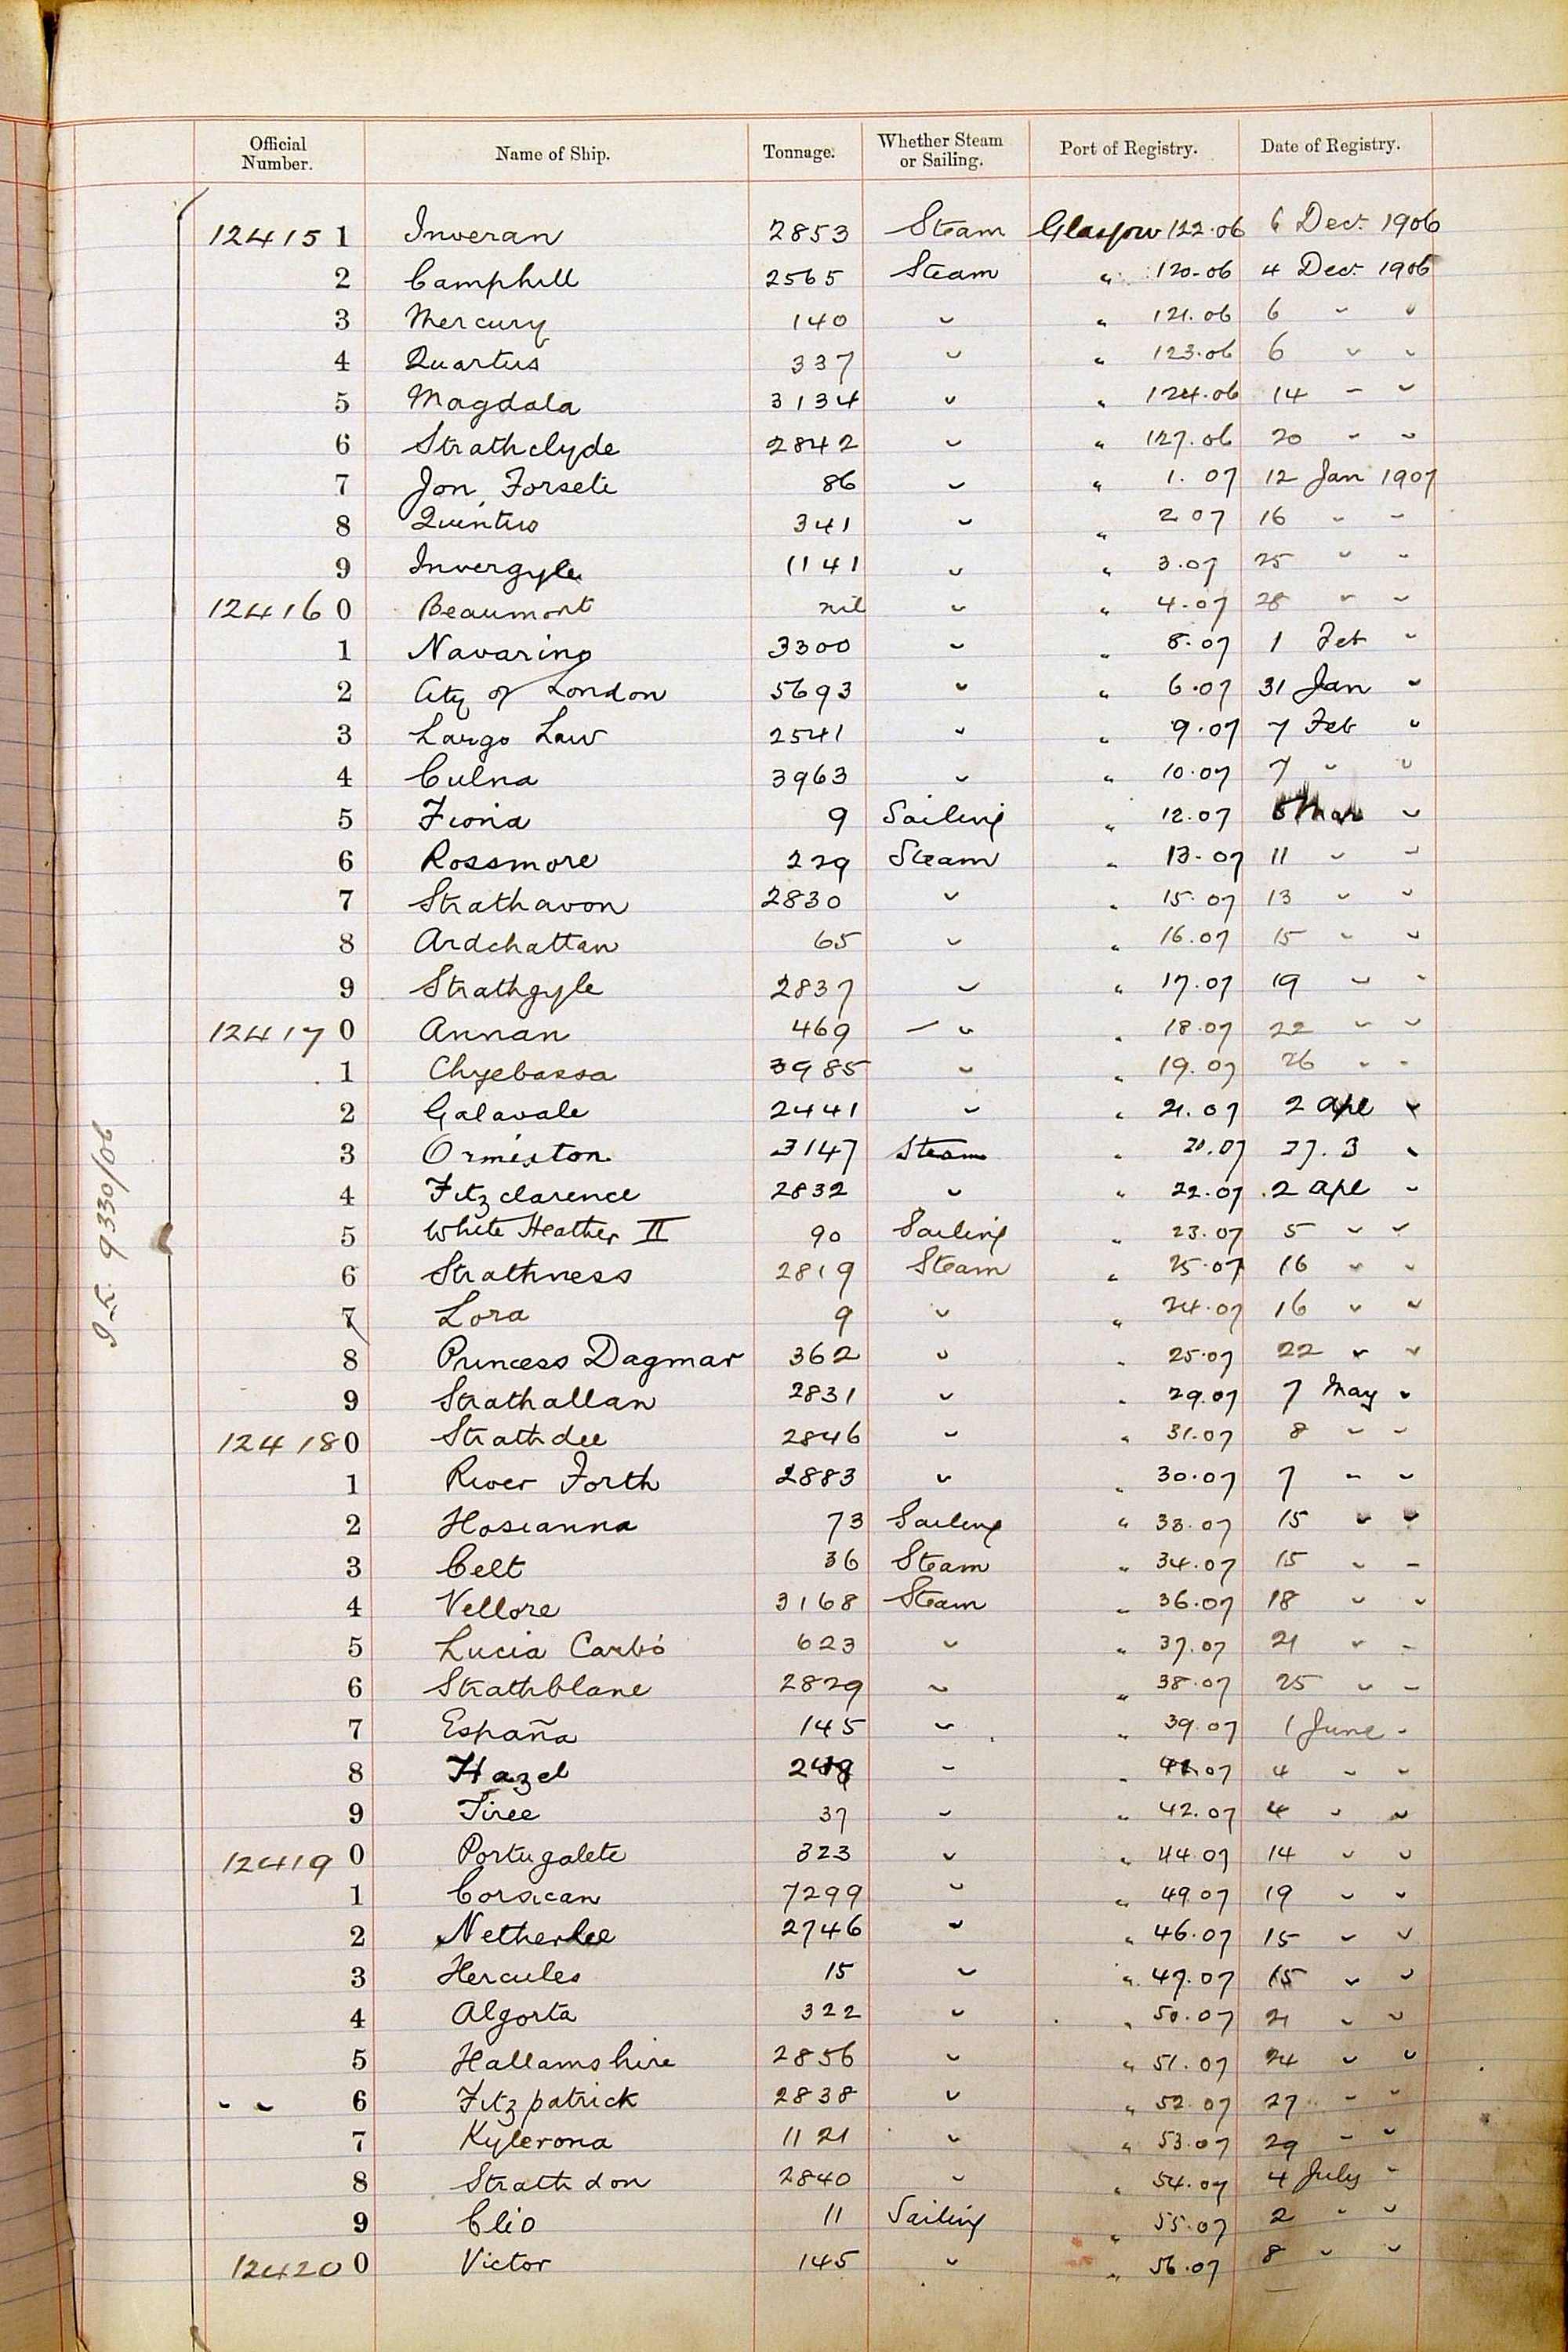 Official Number. Name of Ship. Tonnage. Whether Steam or Sailing. Port of Registry. Date of Registry.
124151 Inveran 2853 Steam Glasgow 122.06 6 Dec. 1906
2 Camphill 2565 Steam " 120.06 4 Dec. 1906
3 Mercury 140 " " 121.06 6 " "
4 Quartus 337 " " 123.06 6 " "
5 Magdala 3134 " " 124.06 14 " "
6 Strathclyde 2842 " " 127.06 20 " "
7 Jon Forseti 86 " " 1.07 12 Jan 1907
8 Quintus 341 " " 2 07 16 " "
9 Invergyle 1141 " " 3.07 25 " "
124160 Beaumont nil " " 4.07 28 " "
1 Navarino 3300 " " 8.07 1 Feb "
2 City of London 5693 " " 6.07 31 Jan "
3 Largo Law 2541 " " 9.07 7 Feb "
4 Culna 3963 " " 10.07 7 " "
5 Fiona 9 Sailing " 12.07 5 Mar "
6 Rossmore 229 Steam " 13.07 11 " "
7 Strathavon 2830 " " 15.07 13 " "
8 Ardchattan 65 " " 16.07 15 " "
9 Strathgyle 2837 " " 17.07 19 " "
124170 Annan 469 " " 18.07 22 " "
1 Chyebassa 3985 " " 19.07 26 " "
2 Galavale 2441 " " 21.07 2 Apl "
3 Ormiston 3147 Steam " 20.07 27.3 "
4 Fitzclarence 2832 " " 22.07 2 Apl "
5 White Heather II 90 Sailing " 23.07 5 " "
6 Strathness 2819 Steam " 25.07 16 " "
7 Lora 9 " " 24.07 16 " "
8 Princess Dagmar 362 " " 25.07 22 " "
9 Strathallan 2831 " " 29.07 7 May "
124180 Strathdee 2846 " " 31.07 8 " "
1 River Forth 2883 " " 30.07 7 " "
2 Hosianna 73 Sailing " 33.07 15 " "
3 Celt 36 Steam " 34.07 15 " "
4 Vellore 3168 Steam " 36.07 18 " "
5 Lucia Carbó 623 " " 37.07 21 " "
6 Strathblane 2829 " " 38.07 25 " "
7 España 145 " " 39.07 1 June "
8 Hazel " " 41.07 4 " "
9 Tiree 37 " " 42.07 4 " "
124190 Portugalete 323 " " 44.07 14 " "
1 Corsican 7299 " " 49.07 19 " "
2 Netherlee 2746 " " 46.07 15 " "
3 Hercules 15 " " 47.07 15 " "
4 Algorta 322 " " 50.07 21 " "
5 Hallamshire 2856 " " 51.07 24 " "
" " 6 Fitzpatrick 2838 " " 52.07 27 " "
7 Kylerona 1121 " " 53.07 29 " "
8 Strathdon 2840 " " 54.07 4 July "
9 Clio 11 Sailing " 55.07 2 " "
124200 Victor 145 " " 56.07 8 " "
9330/06